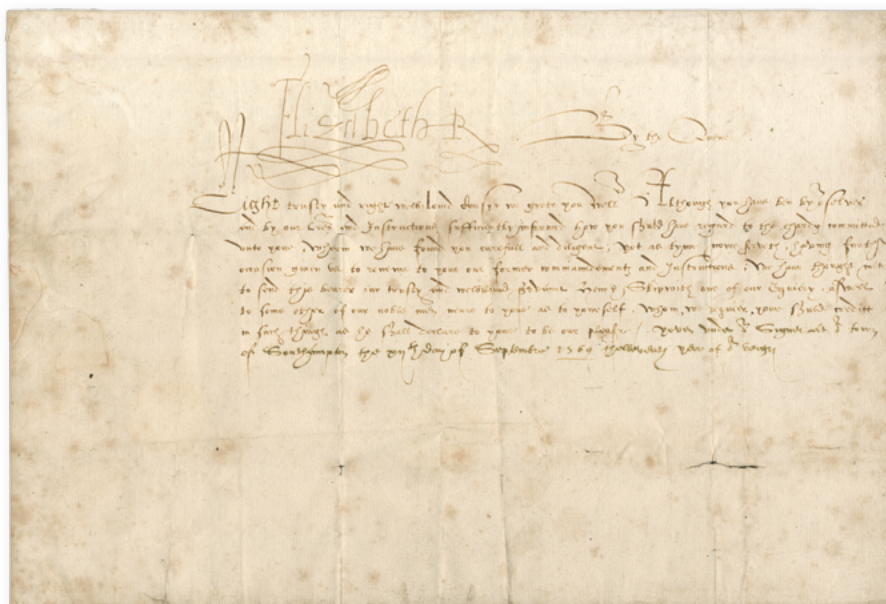 Elizabeth R
By the Quene
Right trusty and right welbiloved Cousyn we grete you well. Although you have ben by or selves
and by our lres and Instructions sufficiently infourmed how you shuld have regard to the chardg committed
unto you, wherin we have found you carefull and diligent, yet as tyme now serveth, having furth
occasion given us to renewe to you our former commaundments and Instructions, We have thought mete
to send this bearer our trusty and welbiloved servant Henry Skipwith one of our Equiery aswell
to some other of our noble men nere to you as to yourself, whom we require you shuld credit
in such things as he shall declare to you to be our pleasr. Yeven under or Signet at or town
of Southampton the day of Septembre 1569 the eleventh yere of or reign